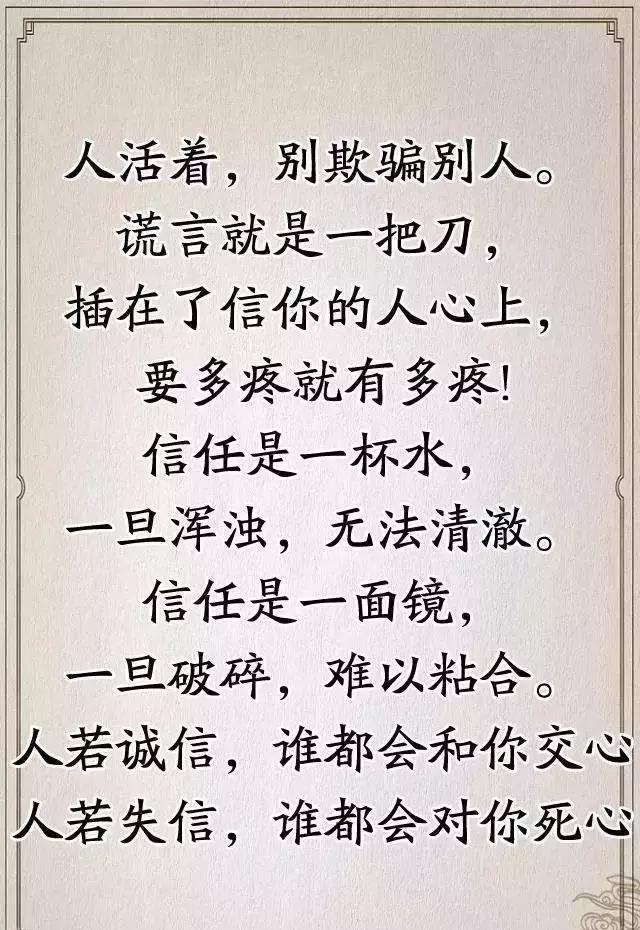 人活着，别欺骗别人。
谎言就是一把刀，
插在了信你的人心上，
要多疼就有多疼！
信任是一杯水，
一旦浑浊，无法清澈。
信任是一面镜，
一旦破碎，难以粘合。
人若诚信，谁都会和你交心
人若失信，谁都会对你死心